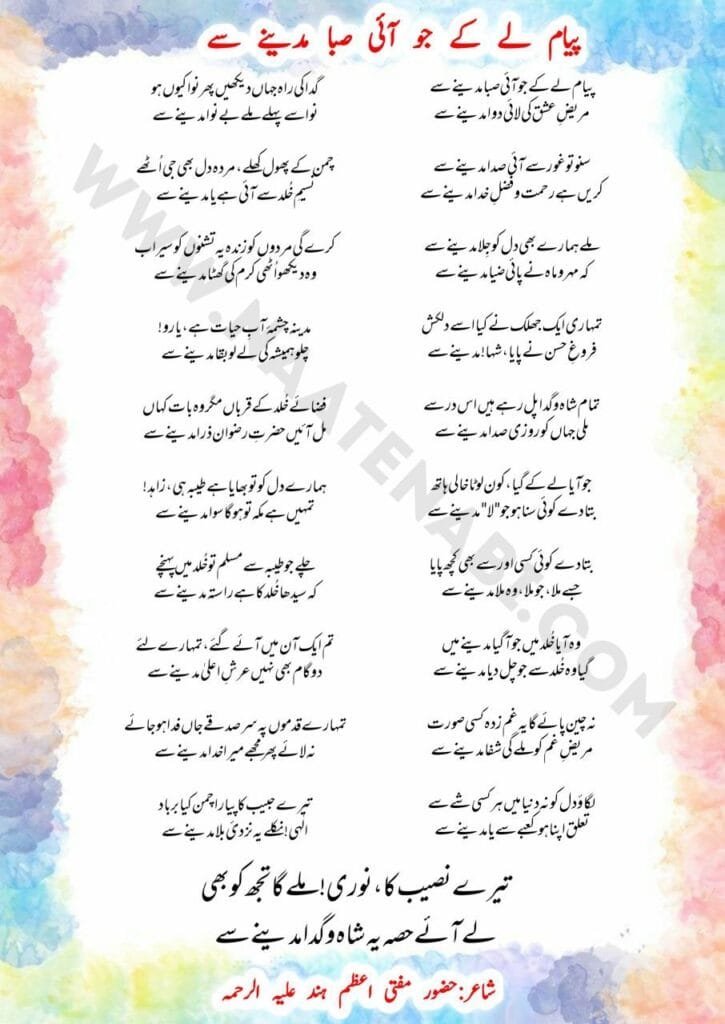 پیام لے کے جو آئی صبا مدینے سے
پیام لے کے جو آئی صبا مدینے سے
مریضِ عشق کی لائی دوا مدینے سے
سنو تو غور سے آئی صدا مدینے سے
کریں ہے رحمت و فضلِ خدا مدینے سے
ملے ہمارے بھی دل کو جِلا مدینے سے
کہ مہر و ماہ نے پائی ضیا مدینے سے
تمہاری ایک جھلک نے کیا اسے دلکش
فروغِ حسن نے پایا، شہا! مدینے سے
تمام شاہ و گدا پل رہے ہیں اس در سے
ملی جہاں کو روزی صدا مدینے سے
جو آیا لے کے گیا، کون لوٹا خالی ہاتھ
بتا دے کوئی سنا ہو جو "لا" مدینے سے
بتا دے کوئی کسی اور سے بھی کچھ پایا
جسے ملا، جو ملا، وہ ملا مدینے سے
وہ آیا خُلد میں جو آ گیا مدینے میں
گیا وہ خُلد سے جو چل دیا مدینے سے
نہ چین پائے گا یہ غم زدہ کسی صورت
مریضِ غم کو ملے گی شفا مدینے سے
لگاؤ دل کو نہ دنیا میں ہر کسی شے سے
تعلق اپنا ہو کعبے سے یا مدینے سے
گدا کی راہ جہاں دیکھیں پھر نوا کیوں ہو
نوا سے پہلے ملے بے نوا مدینے سے
چمن کے پھول کھلے، مردہ دل بھی جی اُٹھے
نسیم خُلد سے آئی ہے یا مدینے سے
کرے گی مردوں کو زندہ یہ تشنوں کو سیراب
وہ دیکھو اُٹھی کرم کی گھٹا مدینے سے
مدینہ چشمۂ آبِ حیات ہے، یارو!
چلو ہمیشہ کی لے لو بقا مدینے سے
فضائے خُلد کے قرباں مگر وہ بات کہاں
مل آئیں حضرتِ رضوان ذرا مدینے سے
ہمارے دل کو تو بھایا ہے طیبہ ہی، زاہد!
تمہیں ہے مکہ تو ہو گا سوا مدینے سے
چلے جو طیبہ سے مسلم تو خُلد میں پہنچے
کہ سیدھا خُلد کا ہے راستہ مدینے سے
تم ایک آن میں آئے گئے، تمہارے لئے
دو گام بھی نہیں عرشِ اعلیٰ مدینے سے
تمہارے قدموں پہ سر صدقے جاں فدا ہو جائے
نہ لائے پھر مجھے میرا خدا مدینے سے
تیرے حبیب کا پیارا چمن کیا برباد
الٰہی! نکلے یہ نزدی بلا مدینے سے
تیرے نصیب کا، نوری! ملے گا تجھ کو بھی
لے آئے حصہ یہ شاہ و گدا مدینے سے
شاعر: حضور مفتی اعظم ہند علیہ الرحمہ
WWW.NAATENABI.COM